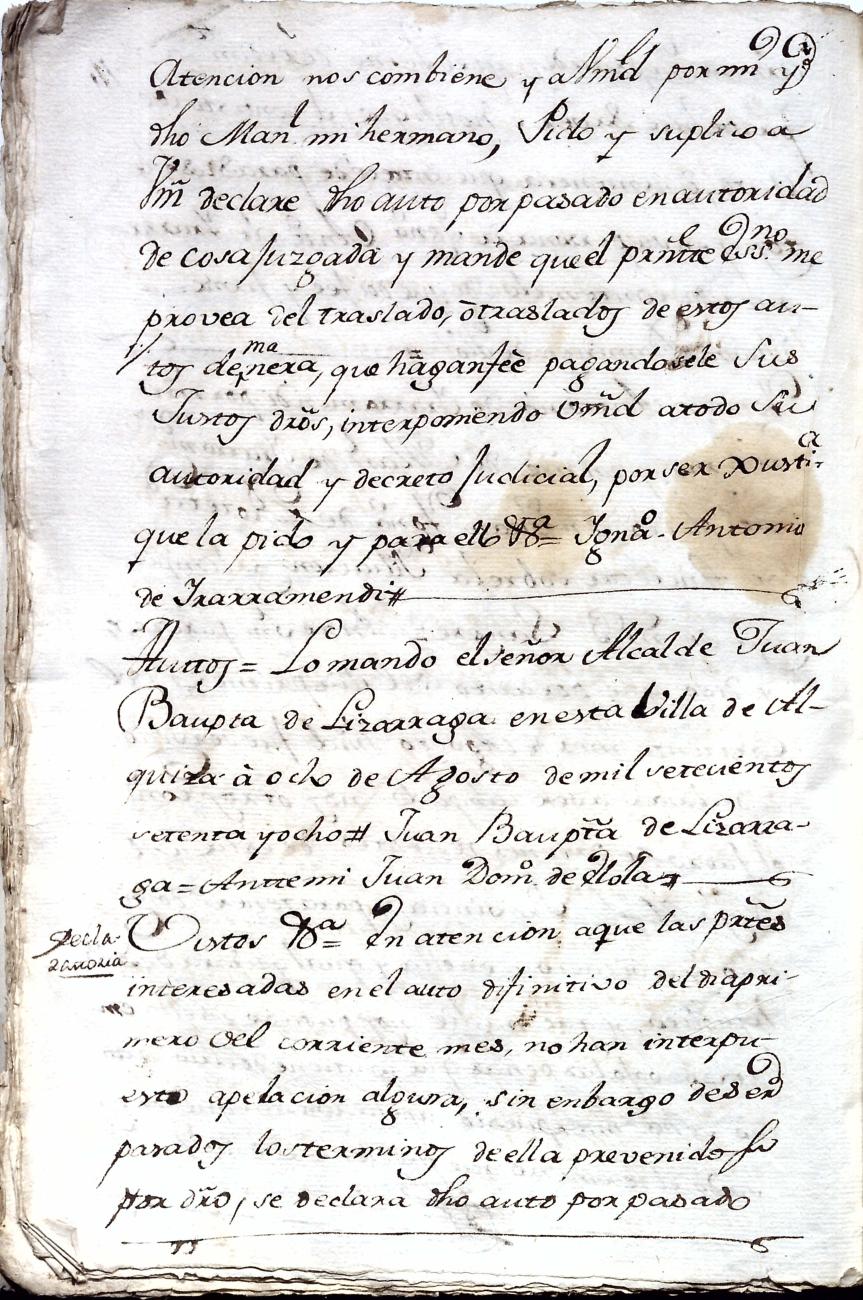 Atencion nos combiene y a Vmd por mi y
dho Manl mi hermano, Pido y suplico a
Vm declare dho auto por pasado en autoridad
de cosa Juzgada y mande que el prnte Essno me
provea del traslado, ò traslados de estos au-
tos de manera, que hagan feè pagandosele sus
Justos dros, interponiendo Vmd a todo su
autoridad y decreto Judicial, por ser Justia
que la pido y para ello &a = Ignao Antonio
de Irarramendi#
Auttos = Lo mandò el señor Alcalde Juan
Baupta de Lizarraga en esta Villa de Al-
quiza à ocho de Agosto de mil setecientos
setenta y ocho # Juan Baupta de Lizarra-
ga = Antte mi Juan Domo de Olola
Decla-
ratoria
Vistos &a = En atencion a que las prtes
interesadas en el auto difinitivo del dia pri-
mero del corriente mes, no han interpu-
esto apelacion alguna, sin enbargo de ser
pasados los terminos de ella prevenidos
por dro, se declara dho auto por pasado